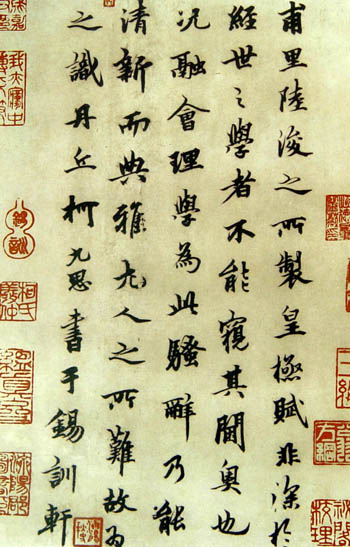 甫里陸浚之所製皇極賦非深於
經世之學者不能窺其閫奧也
況融會理學為此騷辭乃能
清新而典雅尤人之所難故為
之識丹丘柯九思書于錫訓軒
錫訓
柯氏